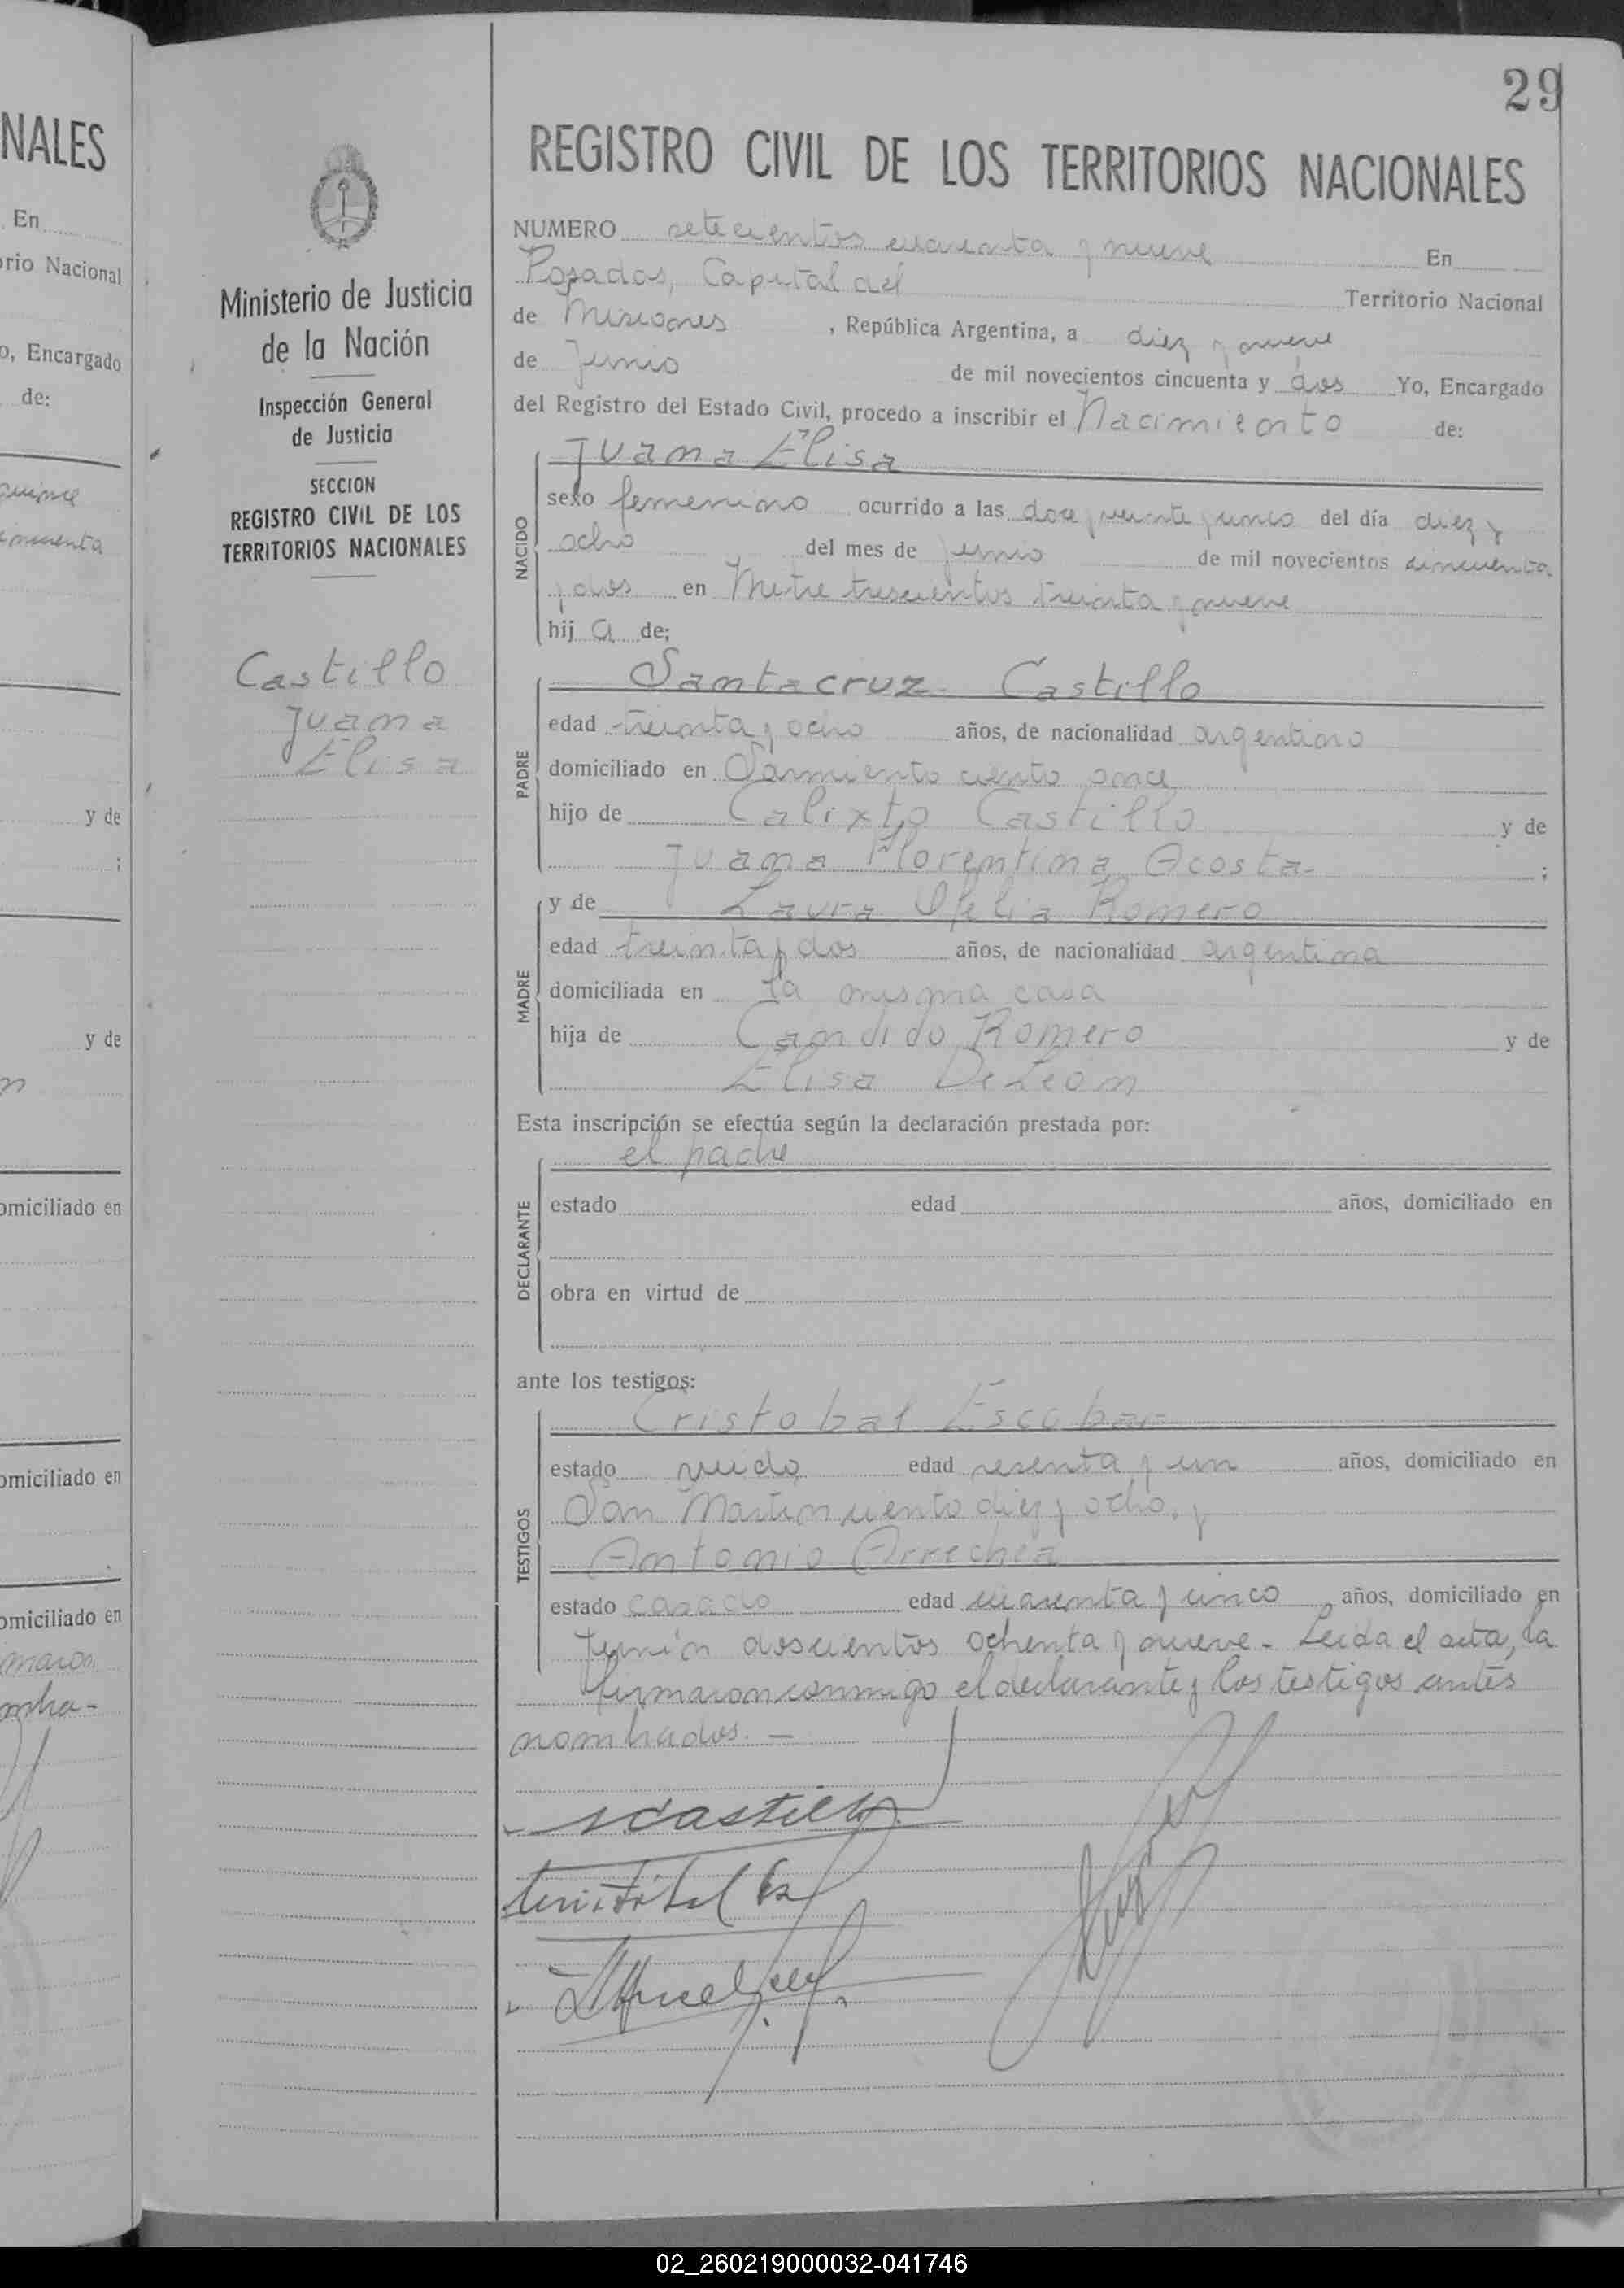 NALES
En
orio Nacional
o, Encargado
de:
quince
cincuenta
y de
;
y de
n
omiciliado en
omiciliado en
omiciliado en
maron
Ministerio de Justicia
de la Nación
Inspección General
de Justicia
SECCION
REGISTRO CIVIL DE LOS
TERRITORIOS NACIONALES
Castillo
Juana
Elisa
29
REGISTRO CIVIL DE LOS TERRITORIOS NACIONALES
NUMERO setecientos cuarenta y nueve En
Posadas, Capital del Territorio Nacional
de Misiones, República Argentina, a diez y nueve
de Junio de mil novecientos cincuenta y dos Yo, Encargado
del Registro del Estado Civil, procedo a inscribir el Nacimiento de:
Juana Elisa
NACIDO
sexo femenino ocurrido a las doce y veinte y cinco del día diez y
ocho del mes de junio de mil novecientos cincuenta
y dos en Mitre trescientos treinta y nueve
hij a de;
Santacruz Castillo
PADRE
edad treinta y ocho años, de nacionalidad argentino
domiciliado en Sarmiento ciento once
hijo de Calixto Castillo y de
Juana Florentina Acosta- ;
y de Laura Ofelia Romero
MADRE
edad treinta y dos años, de nacionalidad argentina
domiciliada en la misma casa
hija de Candido Romero y de
Elisa DeLeon
Esta inscripción se efectúa según la declaración prestada por:
el padre
DECLARANTE
estado edad años, domiciliado en
obra en virtud de
ante los testigos:
Cristobal Escobar
TESTIGOS
estado viudo edad sesenta y un años, domiciliado en
San Martin ciento diez y ocho, y
Antonio Arrechea
estado casado edad cuarenta y cinco años, domiciliado en
Junín doscientos ochenta y nueve- Leida el acta, la
firmaron conmigo el declarante y los testigos antes
nombrados. —
02_260219000032-041746